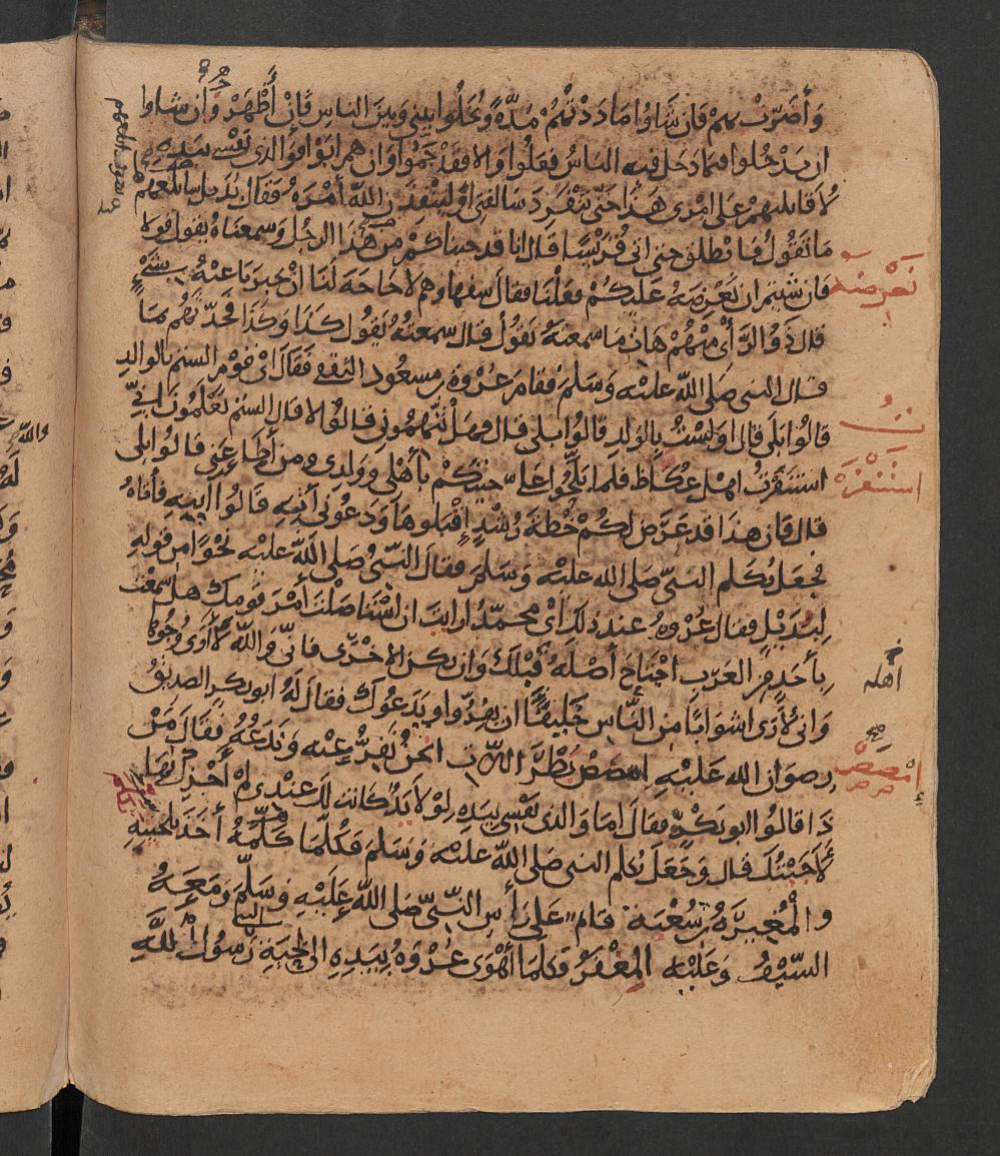 وَأَضَرَّتْ بهمْ فان شَاؤُا مَادَدْتُهُمْ مُدّةً وَيُخَلُّوا بيني وَبينَ الناسِ فَإِنْ أَظْهَرْ وَإن شاوا
ان يَدْخُلوا فيما دَخل فيه الناسُ فعَلُوا وَالا فقد جَمُّوا وَان هم ابَوْا فوَالذي نَفْسي بيَدِهِ
لَأُقَاتِلَنَّهُمْ على امْرِي هَذا حَتَّى تَنْفَرِدَ سَالفتِي اوْ ليُنْفِذَنّ اللهُ أَمْرَهُ فَقَال بُدَيل سابلغهم
مَا تَقُولُ فانطلق حتى اتى قُرَيْشا قال انا قد جئناكمْ من هَذا الرجُل وَسمعنَاهُ يقول قولا
فان شيتم ان نَعْرِضَهُ عَليكُمْ فعَلْنا فقال سفهاوهم لا حَاجَة لَنَا انْ تخبرَنا عنْهُ بشيْءٍ
قال ذَوُو الرَّأْيِ مِنْهُمْ هَاتِ مَا سمعتَهُ يَقُولُ قال سمعتُهُ يَقُول كذَا وَكَذَا فحَدَّثهُم بمَا
قال النبي صَلى اللّه عليْه وَسَلمَ فقام عُرْوَة بن مسعُود الثقفي فَقَالَ اىْ قومِ السْتم بالوالدِ
قالوُا بَلَى قال اوَلَسْتُ بِالوَلدِ قالوُا بلى قال فهَلْ تتَّهمُوني قالوُا لا قال الستُمْ تَعْلَمُونَ انِّي
استَنْفَرْتُ اهْلَ عُكَاظ فلما بلّحُوا عَلَيَّ جئتكُمْ بأهْلي ووَلدي ومن أطَاعَنِي قالوُا بلى
قال فان هذَا قد عَرَض لكُمْ خُطةَ رُشْدٍ اقْبَلوهَا وَدَعُوني آتِهِ قَالوُا ايتِهِ فأتاهُ
فجعَل يُكَلم النبيّ صَلى الله عليْه وَسَلَم فقالَ النبيُّ صَلى اللّه عَليْه نحْوًا من قولهِ
لِبُدَيْلٍ فقال عُرْوَةُ عند ذلكَ أيْ محمّدُ ارايتَ ان اسْتَاصَلْتَ أَمْرَ قوْمِكَ هل سَمعْتَ
بأَحَدٍ مِنَ العَرَبِ اجْتَاحَ أصْلَهُ قبْلَكَ وَان تكن الاخرَى فانّي وَاللّه لَأَرَى وُجُوهًا
وَاني لَأَرَى اشوَابًا منَ النَّاسِ خَلِيقًا ان يفِرُّوا وَيَدَعُوكَ فقالَ لَهُ ابو بكرٍ الصديقُ
رضوَان الله عَليْهِ امْصَصْ بَظْرَ اللّاتِ انحنُ نَفِرُّ عنْه وَنَدَعُهُ فقَالَ مَنْ
ذَا قالوُا ابو بَكْرٍ فقالَ امَا وَالذي نَفْسي بيَدِهِ لوْلا يَدٌ كانَتْ لكَ عنْدِي لَمْ أَجْزِكَ بهَا
لَأَجَبْتُكَ قال وَجَعَلَ يُكلم النبي صَلى اللّه عليْه وَسَلم فكُلّمَا كلّمَهُ أخَذَ بلحْيَتِهِ
وَالْمُغيرَةُ بنُ شعْبَة قام عَلى رَأسِ النَّبيّ صَلى اللّه عَليْهِ وَسَلّمَ وَمَعَهُ
السَّيْفُ وَعَليْهِ المِغْفَرُ فكلمَا أَهْوَى عُرْوَةُ بِيَدِهِ الى لحْيَةِ رَسُول اللّهِ
نعْرِضَهُ
ت
استَنْفَرْتُ
اهله
امْصَصْ